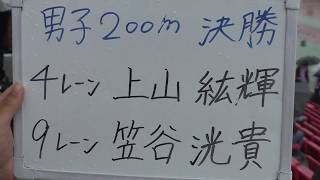 男子200m 決勝
4レーン 上山 紘輝
9レーン 笠谷 洸貴